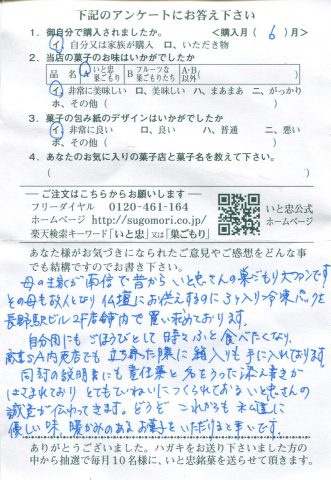 下記のアンケートにお答え下さい
1．御自分で購入されましたか　＜購入月（ 6 ）月＞
イ、自分又は家族が購入　ロ、いただき物
2．当店の菓子のお味はいかがでしたか
品　名　A いと忠巣ごもり　B フルーツな巣ごもりたち　A・B以外（　　）
イ、非常に美味しい　ロ、美味しい　ハ、まあまあ　ニ、がっかり
ホ、その他（　　）
3．菓子の包み紙のデザインはいかがでしたか
イ、非常に良い　ロ、良い　ハ、普通　ニ、悪い
ホ、その他（　　）
4．あなたのお気に入りの菓子店と菓子名を教えて下さい。
（　　）
ご注文はこちらからお願いします
フリーダイヤル　0120-461-164
ホームページ　http://sugomori.co.jp/
楽天検索キーワード「いと忠」又は「巣ごもり」
いと忠公式
ホームページ
あなた様がお気づきになられたご意見やご感想をどんな事
でも結構ですのでお書き下さい。
母の生家が南信で昔からいと忠さんの巣ごもり大ファンです
その母も故人となり仏壇にお供えするのに3ヶ入り冷凍パックを
長野駅ビル2F店舗内で買い求めております。
自分用にもごほうびとして時々ふと食べたくなり、
A内売店でも立ち寄った際に 箱入りも手に入れております
同封の説明書にも責任業と名をうった添え書きが
はさまれており とてもていねいにつくられておるいと忠さんの
誠意が伝わってきます。どうぞ これからも永遠に
優しい味、暖かみのあるお菓子をいただけると幸いです。
ありがとうございました。ハガキをお送り下さいました方の
中から抽選で毎月10名様に、いと忠銘菓を送らせて頂きます。